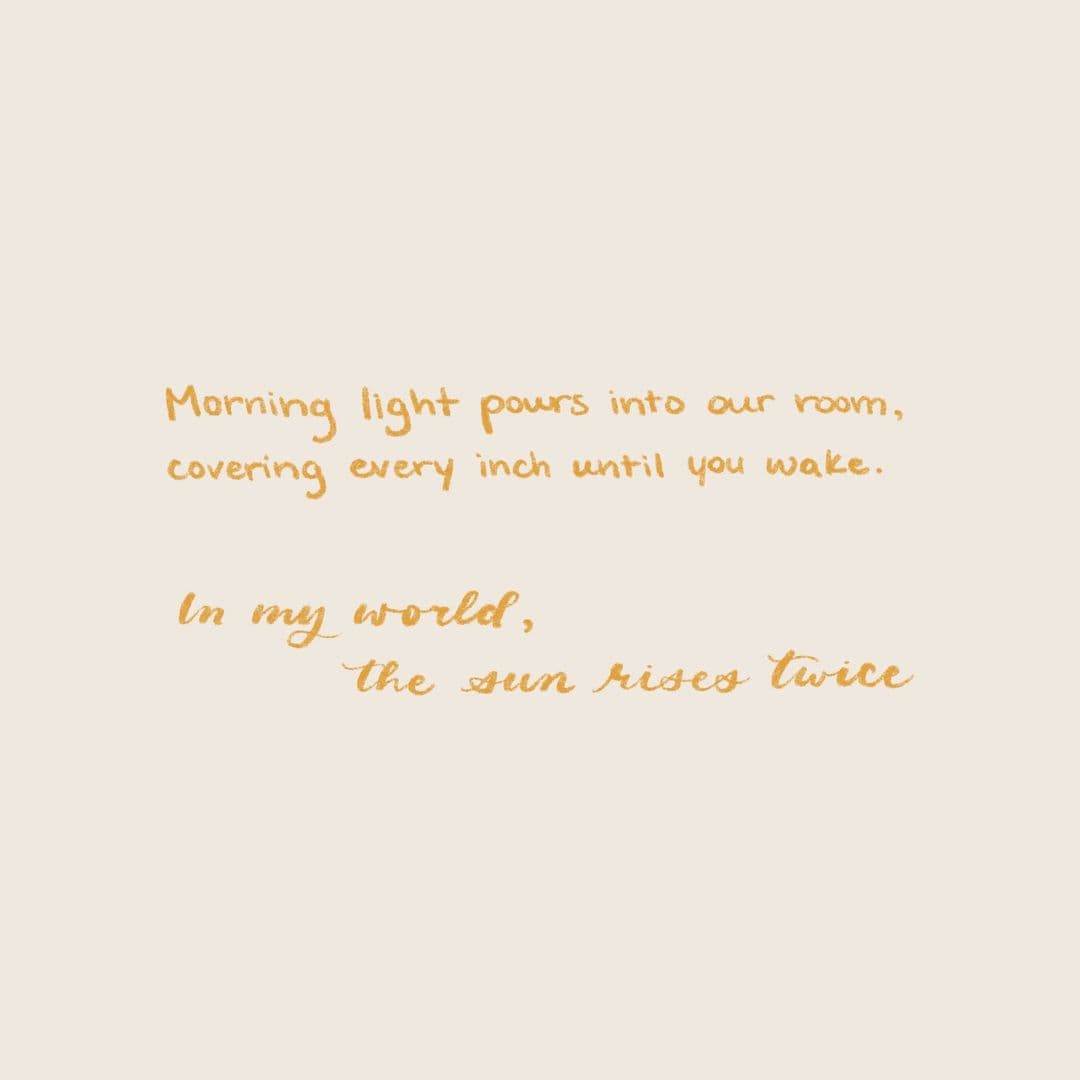 Morning light pours into our room,
covering every inch until you wake.
In my world,
the sun rises twice